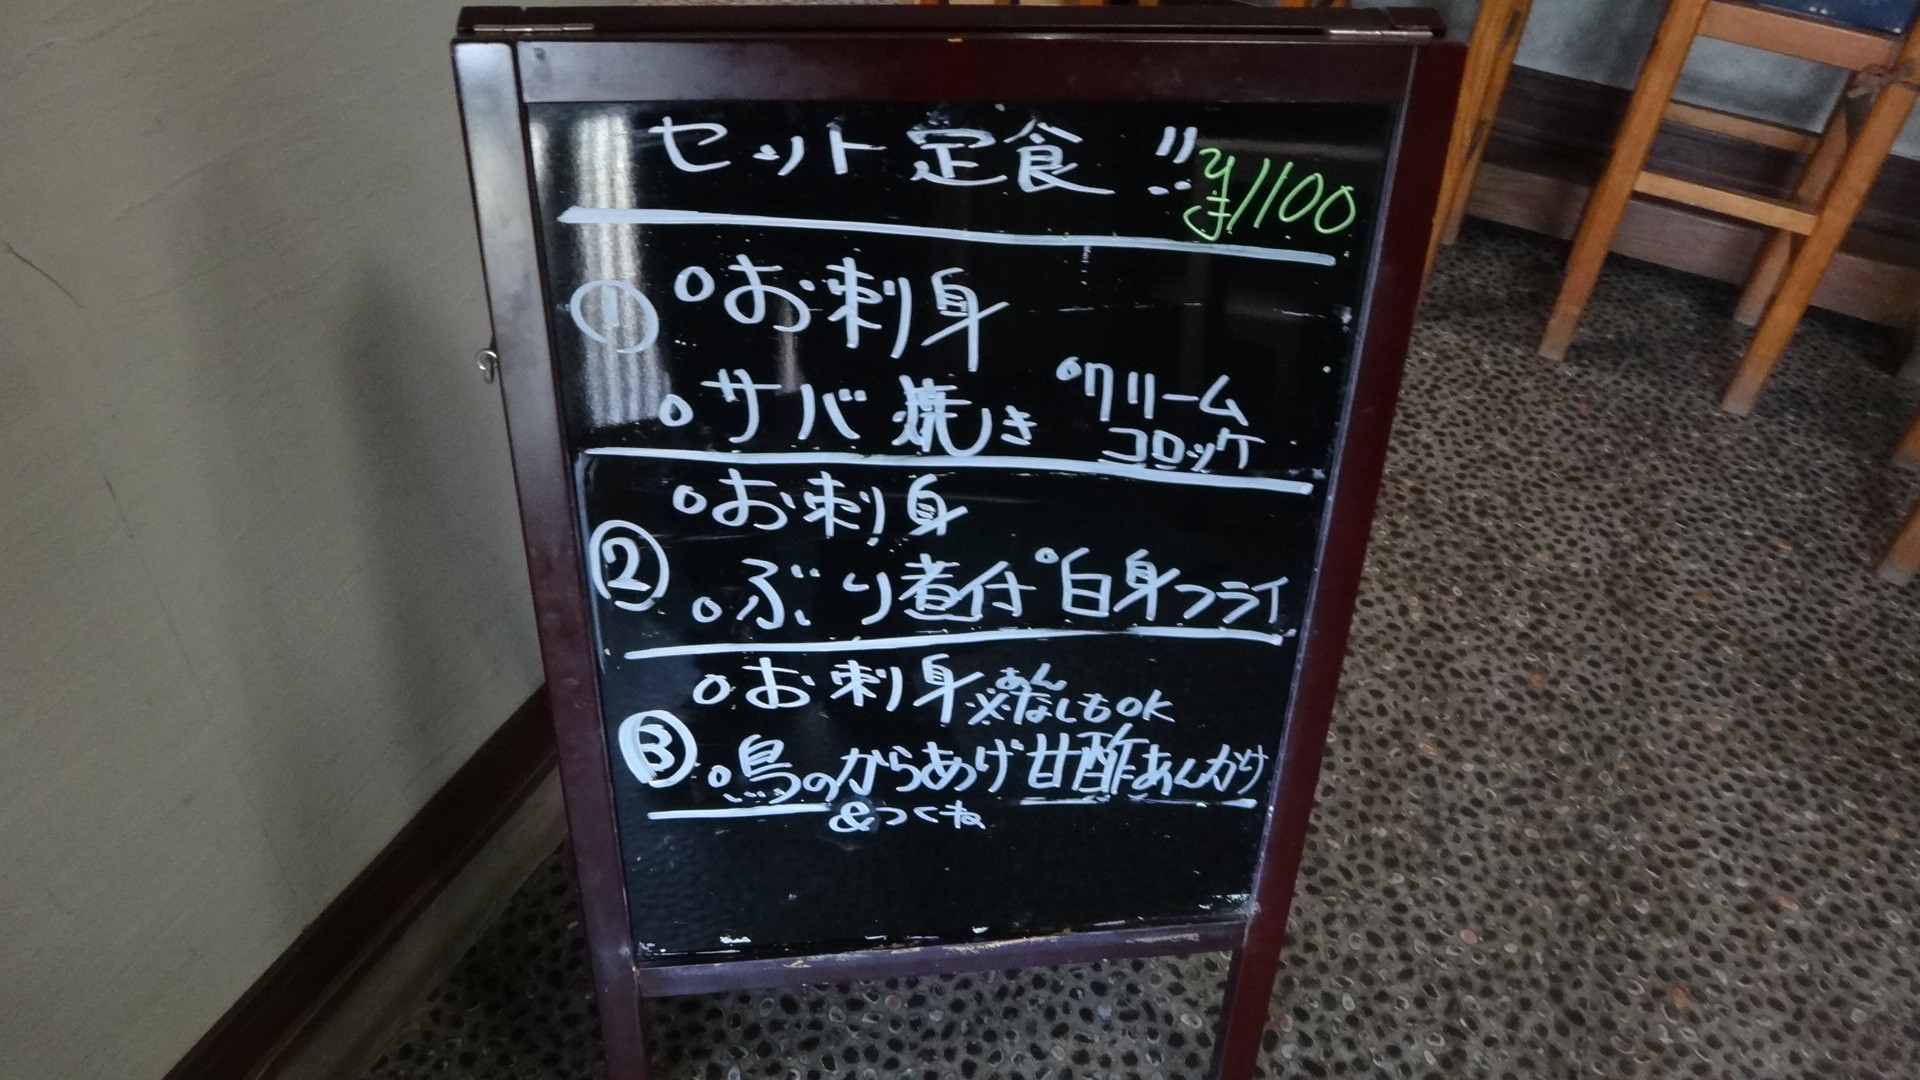 セット定食!!
¥1100
① ○お刺身
○サバ焼き ○クリーム
コロッケ
○お刺身
② ○ぶり煮付 ○白身フライ
○お刺身 ※あん
なしもOK
③ ○鳥のからあげ甘酢あんかけ
&つくね